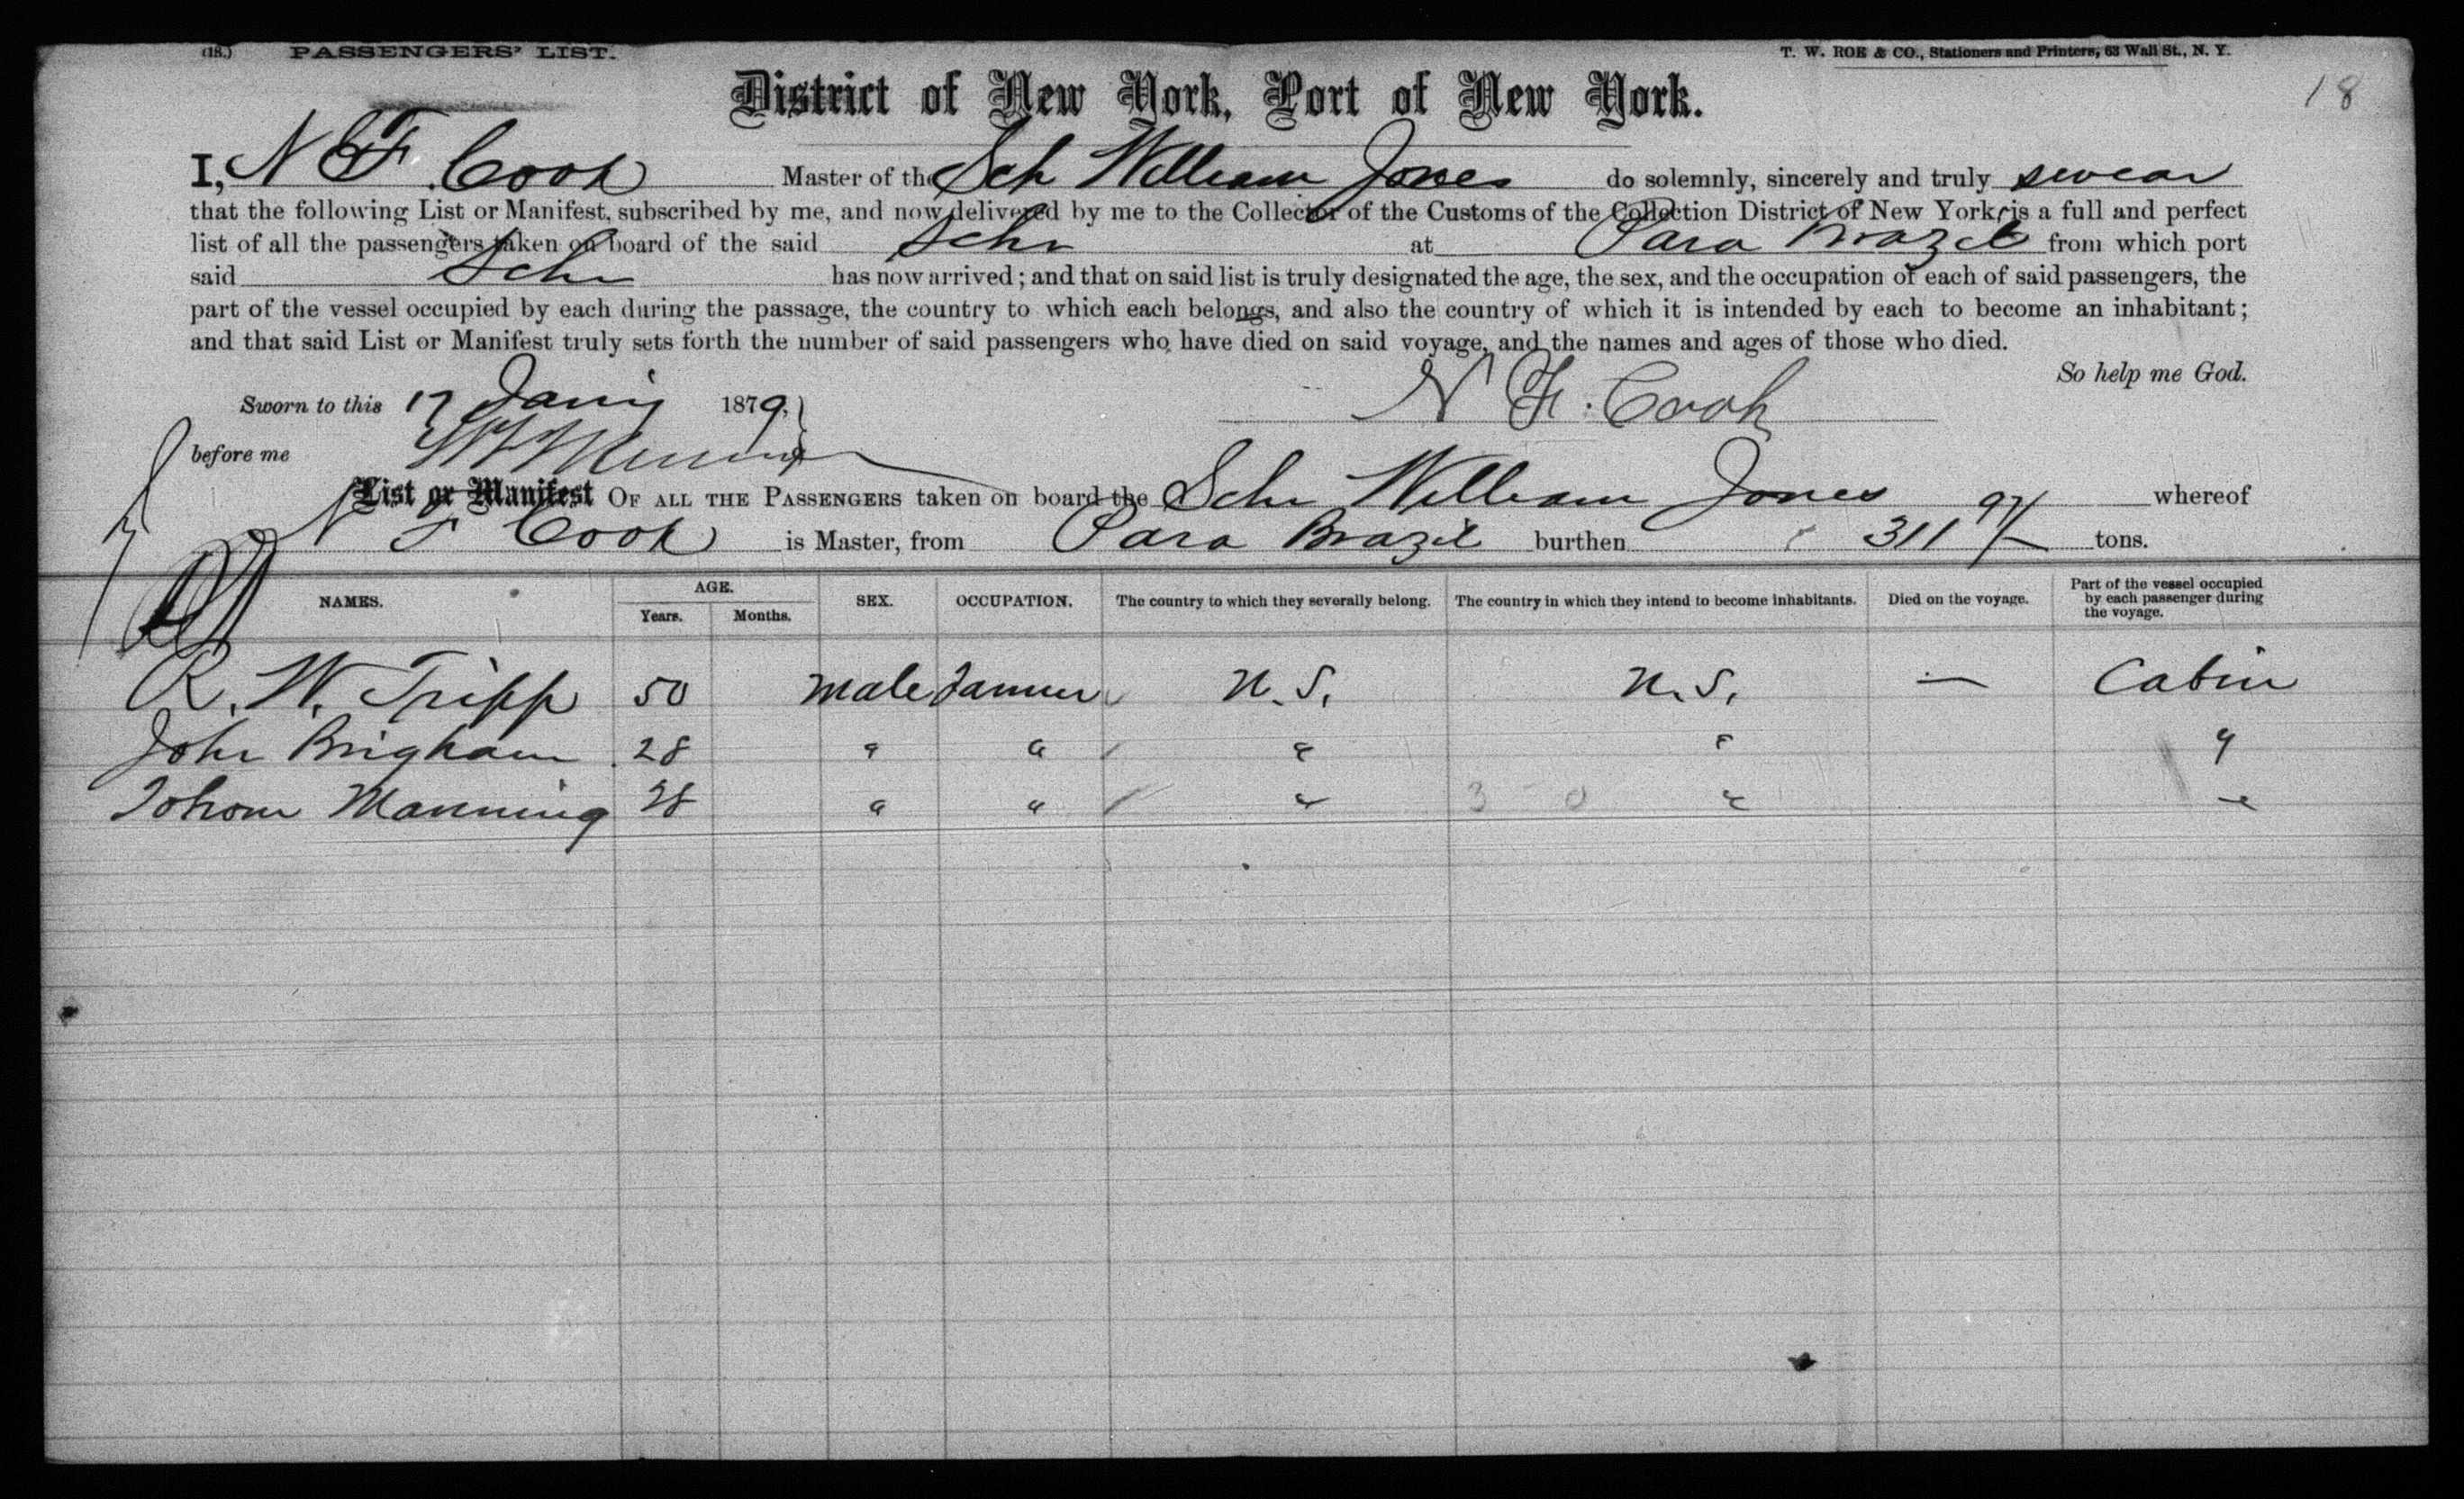 (18.) PASSENGERS' LIST. T. W. ROE & CO., Stationers and Printers, 63 Wall St., N. Y.
18
District of New York, Port of New York.
I, N F Cook Master of the Sch William Jones do solemnly, sincerely and truly swear
that the following List or Manifest, subscribed by me, and now delivered by me to the Collector of the Customs of the Collection District of New York, is a full and perfect
list of all the passengers taken on board of the said Schr at Para Brazil from which port
said Schr has now arrived; and that on said list is truly designated the age, the sex, and the occupation of each of said passengers, the
part of the vessel occupied by each during the passage, the country to which each belongs, and also the country of which it is intended by each to become an inhabitant;
and that said List or Manifest truly sets forth the number of said passengers who have died on said voyage, and the names and ages of those who died.
So help me God.
Sworn to this 17 Jany 1879, N F. Cook
before me
List or Manifest OF ALL THE PASSENGERS taken on board the Schr William Jones whereof
N F Cook is Master, from Para Brazil burthen 311 97/ tons.
NAMES. AGE. Years. Months. SEX. OCCUPATION. The country to which they severally belong. The country in which they intend to become inhabitants. Died on the voyage. Part of the vessel occupied by each passenger during the voyage.
R. W. Tripp 50 male U.S. U.S. — Cabin
John Brigham 28 " " " " "
Manning 28 " " " 3 0 " "